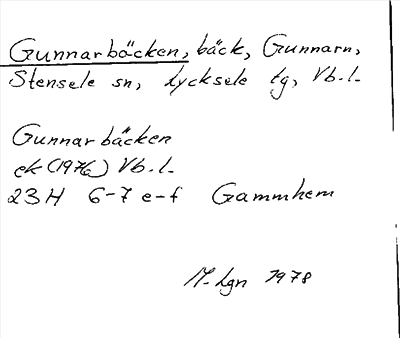 Gunnarbäcken, bäck, Gunnarn,
Stensele sn, Lycksele tg, Vb.l.
Gunnarbäcken
ek (1976) Vb.l.
23H 6-7 e-f Gammhem
M-Lgn 1978